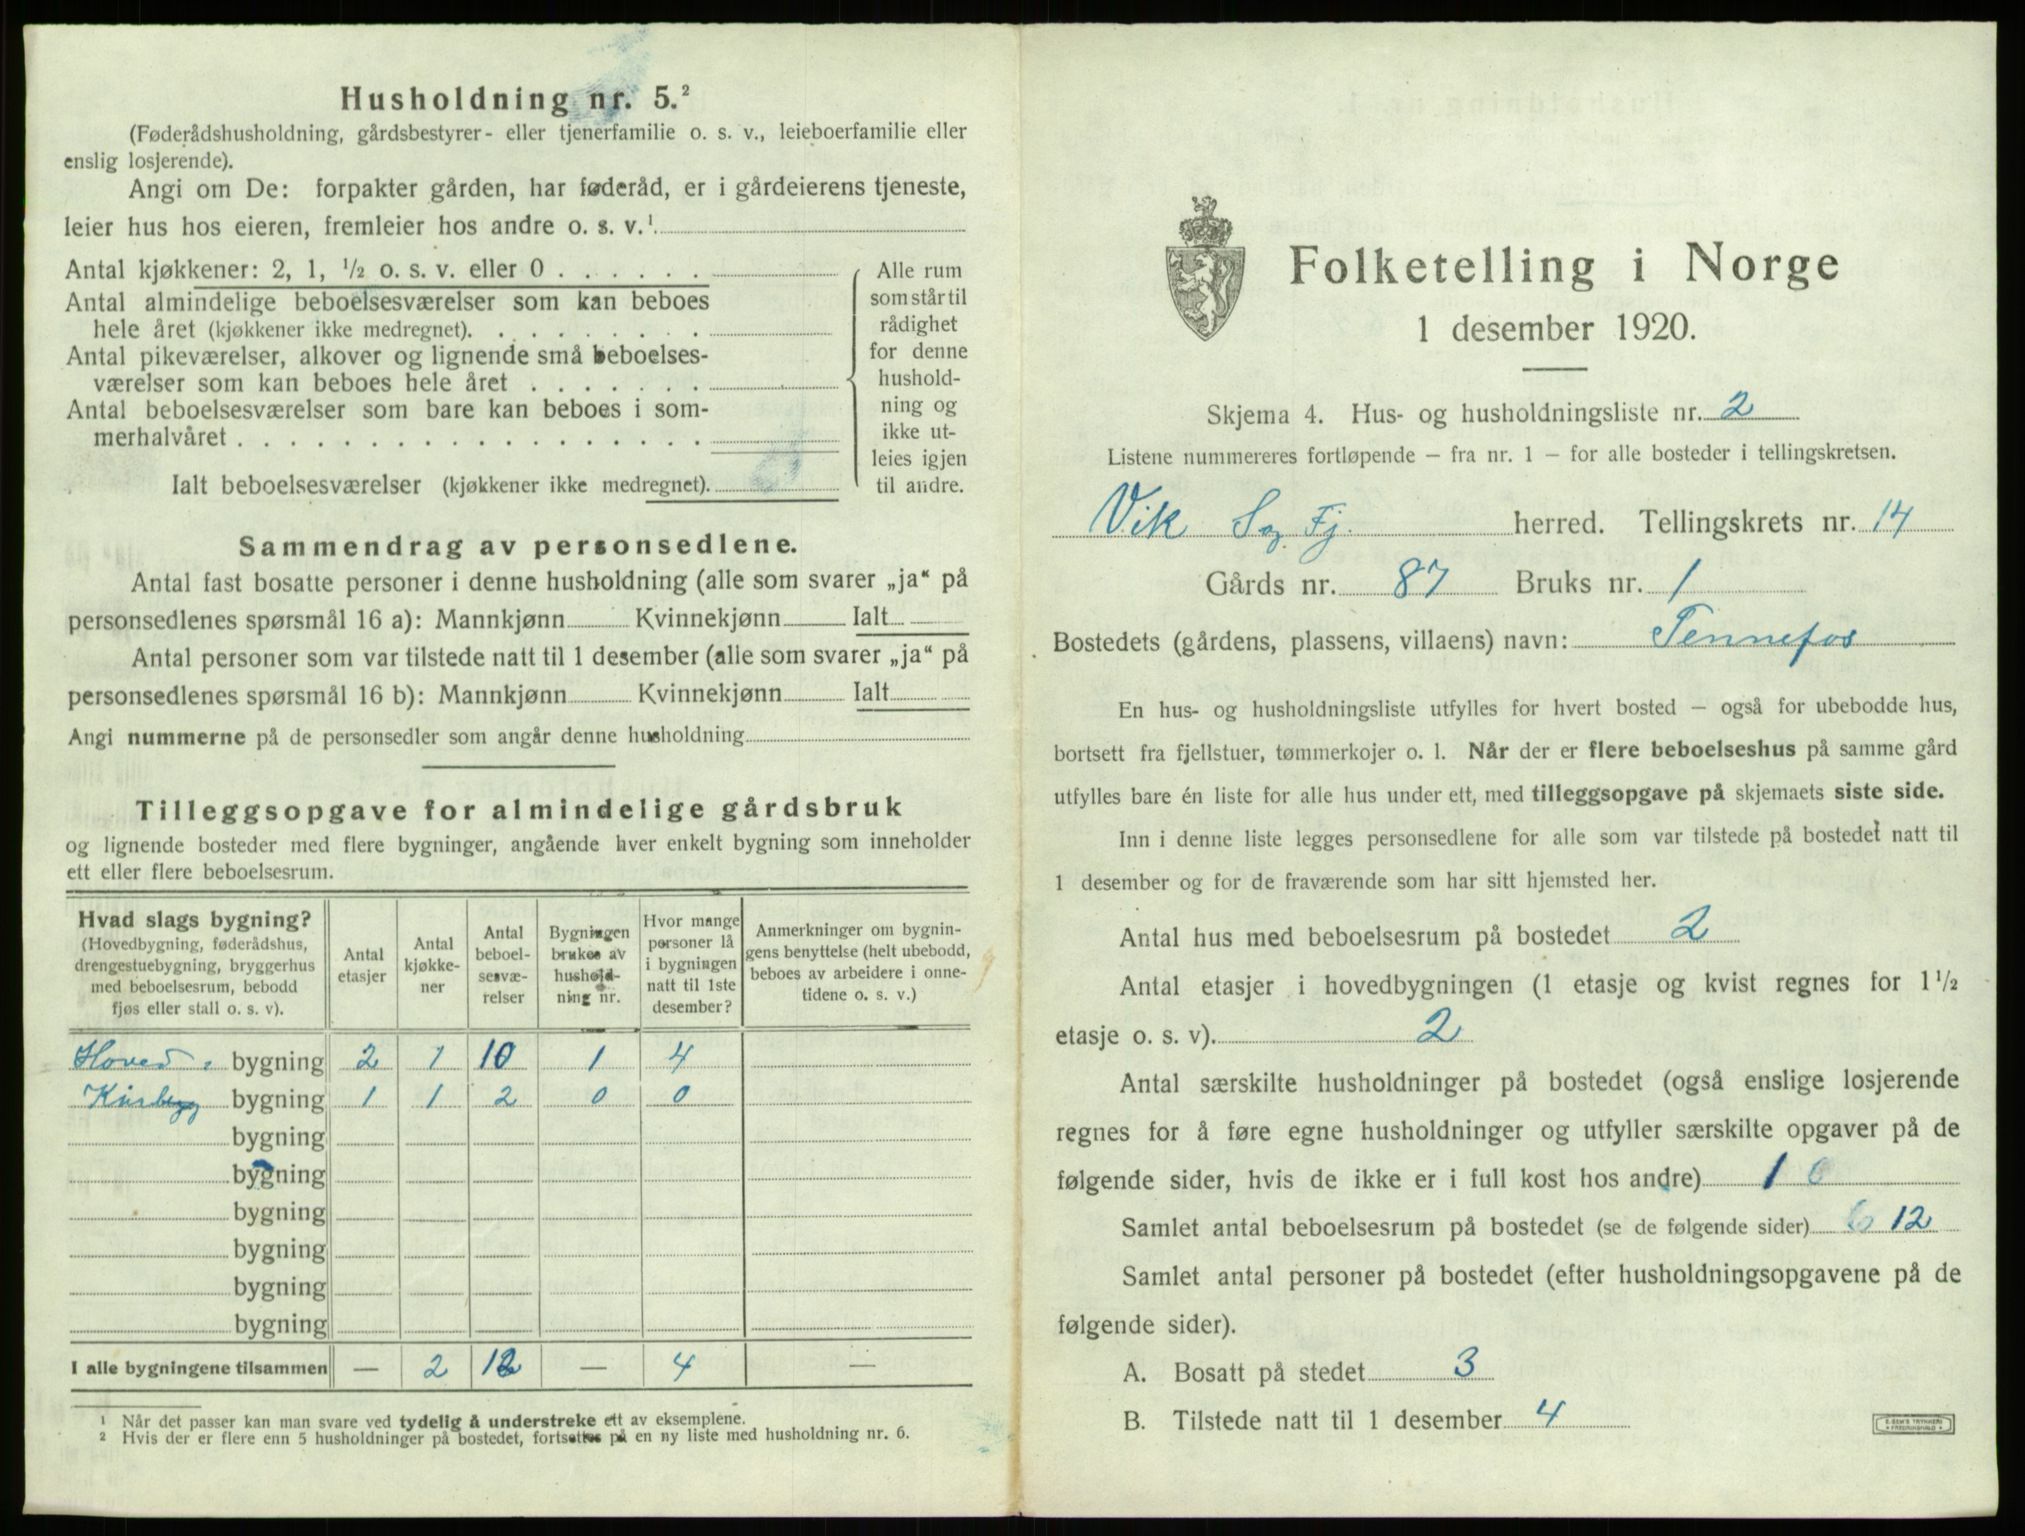 Husholdning nr. 5.²
(Føderådshusholdning, gårdsbestyrer- eller tjenerfamilie o. s. v., leieboerfamilie eller
enslig losjerende).
Angi om De: forpakter gården, har føderåd, er i gårdeierens tjeneste,
leier hus hos eieren, fremleier hos andre o. s. v.¹
Antal kjøkkener: 2, 1, ½ o. s. v. eller 0
Antal almindelige beboelsesværelser som kan beboes
hele året (kjøkkener ikke medregnet).
Antal pikeværelser, alkover og lignende små beboelses-
værelser som kan beboes hele året
Antal beboelsesværelser som bare kan beboes i som-
merhalvåret
Ialt beboelsesværelser (kjøkkener ikke medregnet).
Alle rum
som står til
rådighet
for denne
hushold-
ning og
ikke ut-
leies igjen
til andre.
Sammendrag av personsedlene.
Antal fast bosatte personer i denne husholdning (alle som svarer „ja“ på
personsedlenes spørsmål 16 a): Mannkjønn Kvinnekjønn Ialt
Antal personer som var tilstede natt til 1 desember (alle som svarer „ja“ på
personsedlenes spørsmål 16 b): Mannkjønn Kvinnekjønn Ialt
Angi nummerne på de personsedler som angår denne husholdning
Tilleggsopgave for almindelige gårdsbruk
og lignende bosteder med flere bygninger, angående hver enkelt bygning som inneholder
ett eller flere beboelsesrum.
Hvad slags bygning?
(Hovedbygning, føderådshus,
drengestuebygning, bryggerhus
med beboelsesrum, bebodd
fjøs eller stall o. s. v).
Antal
etasjer
Antal
kjøkke-
ner
Antal
beboel-
sesvæ-
relser
Bygningen
brukes av
hushold-
ning nr.
Hvor mange
personer lå
i bygningen
natt til 1ste
desember?
Anmerkninger om bygnin-
gens benyttelse (helt ubebodd,
beboes av arbeidere i onne-
tidene o. s. v.)
Hoved bygning 2 1 10 1 4
bygning 1 1 2 0 0
bygning
bygning
bygning
bygning
bygning
bygning
I alle bygningene tilsammen — 2 12 — 4 —
¹ Når det passer kan man svare ved tydelig å understreke ett av eksemplene.
² Hvis der er flere enn 5 husholdninger på bostedet, fortsettes på en ny liste med husholdning nr. 6.
Folketelling i Norge
1 desember 1920.
Skjema 4. Hus- og husholdningsliste nr. 2
Listene nummereres fortløpende — fra nr. 1 — for alle bosteder i tellingskretsen.
Vik Sog. Fj. herred. Tellingskrets nr. 14
Gårds nr. 87 Bruks nr. 1
Bostedets (gårdens, plassens, villaens) navn: Tennefos
En hus- og husholdningsliste utfylles for hvert bosted — også for ubebodde hus,
bortsett fra fjellstuer, tømmerkojer o. l. Når der er flere beboelseshus på samme gård
utfylles bare én liste for alle hus under ett, med tilleggsopgave på skjemaets siste side.
Inn i denne liste legges personsedlene for alle som var tilstede på bostedet natt til
1 desember og for de fraværende som har sitt hjemsted her.
Antal hus med beboelsesrum på bostedet 2
Antal etasjer i hovedbygningen (1 etasje og kvist regnes for 1½
etasje o. s. v). 2
Antal særskilte husholdninger på bostedet (også enslige losjerende
regnes for å føre egne husholdninger og utfyller særskilte opgaver på de
følgende sider, hvis de ikke er i full kost hos andre) 1 6
Samlet antal beboelsesrum på bostedet (se de følgende sider) 6 12
Samlet antal personer på bostedet (efter husholdningsopgavene på de
følgende sider).
A. Bosatt på stedet 3
B. Tilstede natt til 1 desember 4